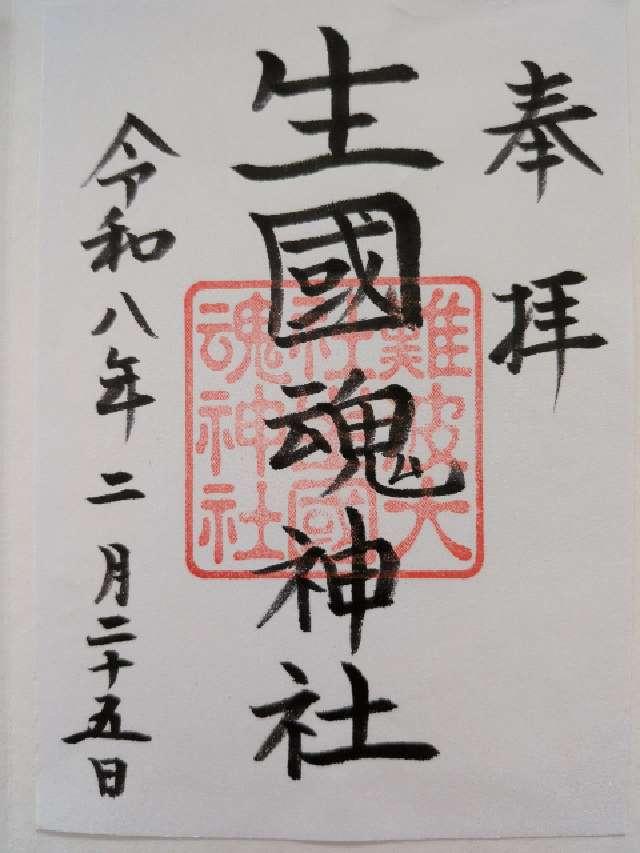 奉拝
生國魂神社
難波大
社生國
魂神社
令和八年二月二十五日